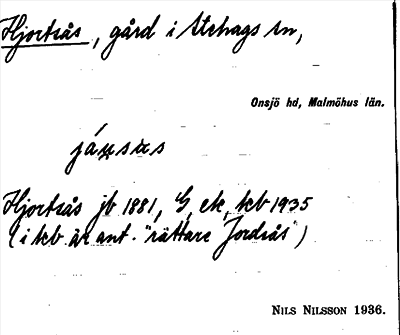 Hjortsås, gård i Stehags sn,
Onsjö hd, Malmöhus län.
Hjortsås jb 1881, G, ek, kb 1935
(i kb är ant. "rättare Jordsås")
NILS NILSSON 1936.